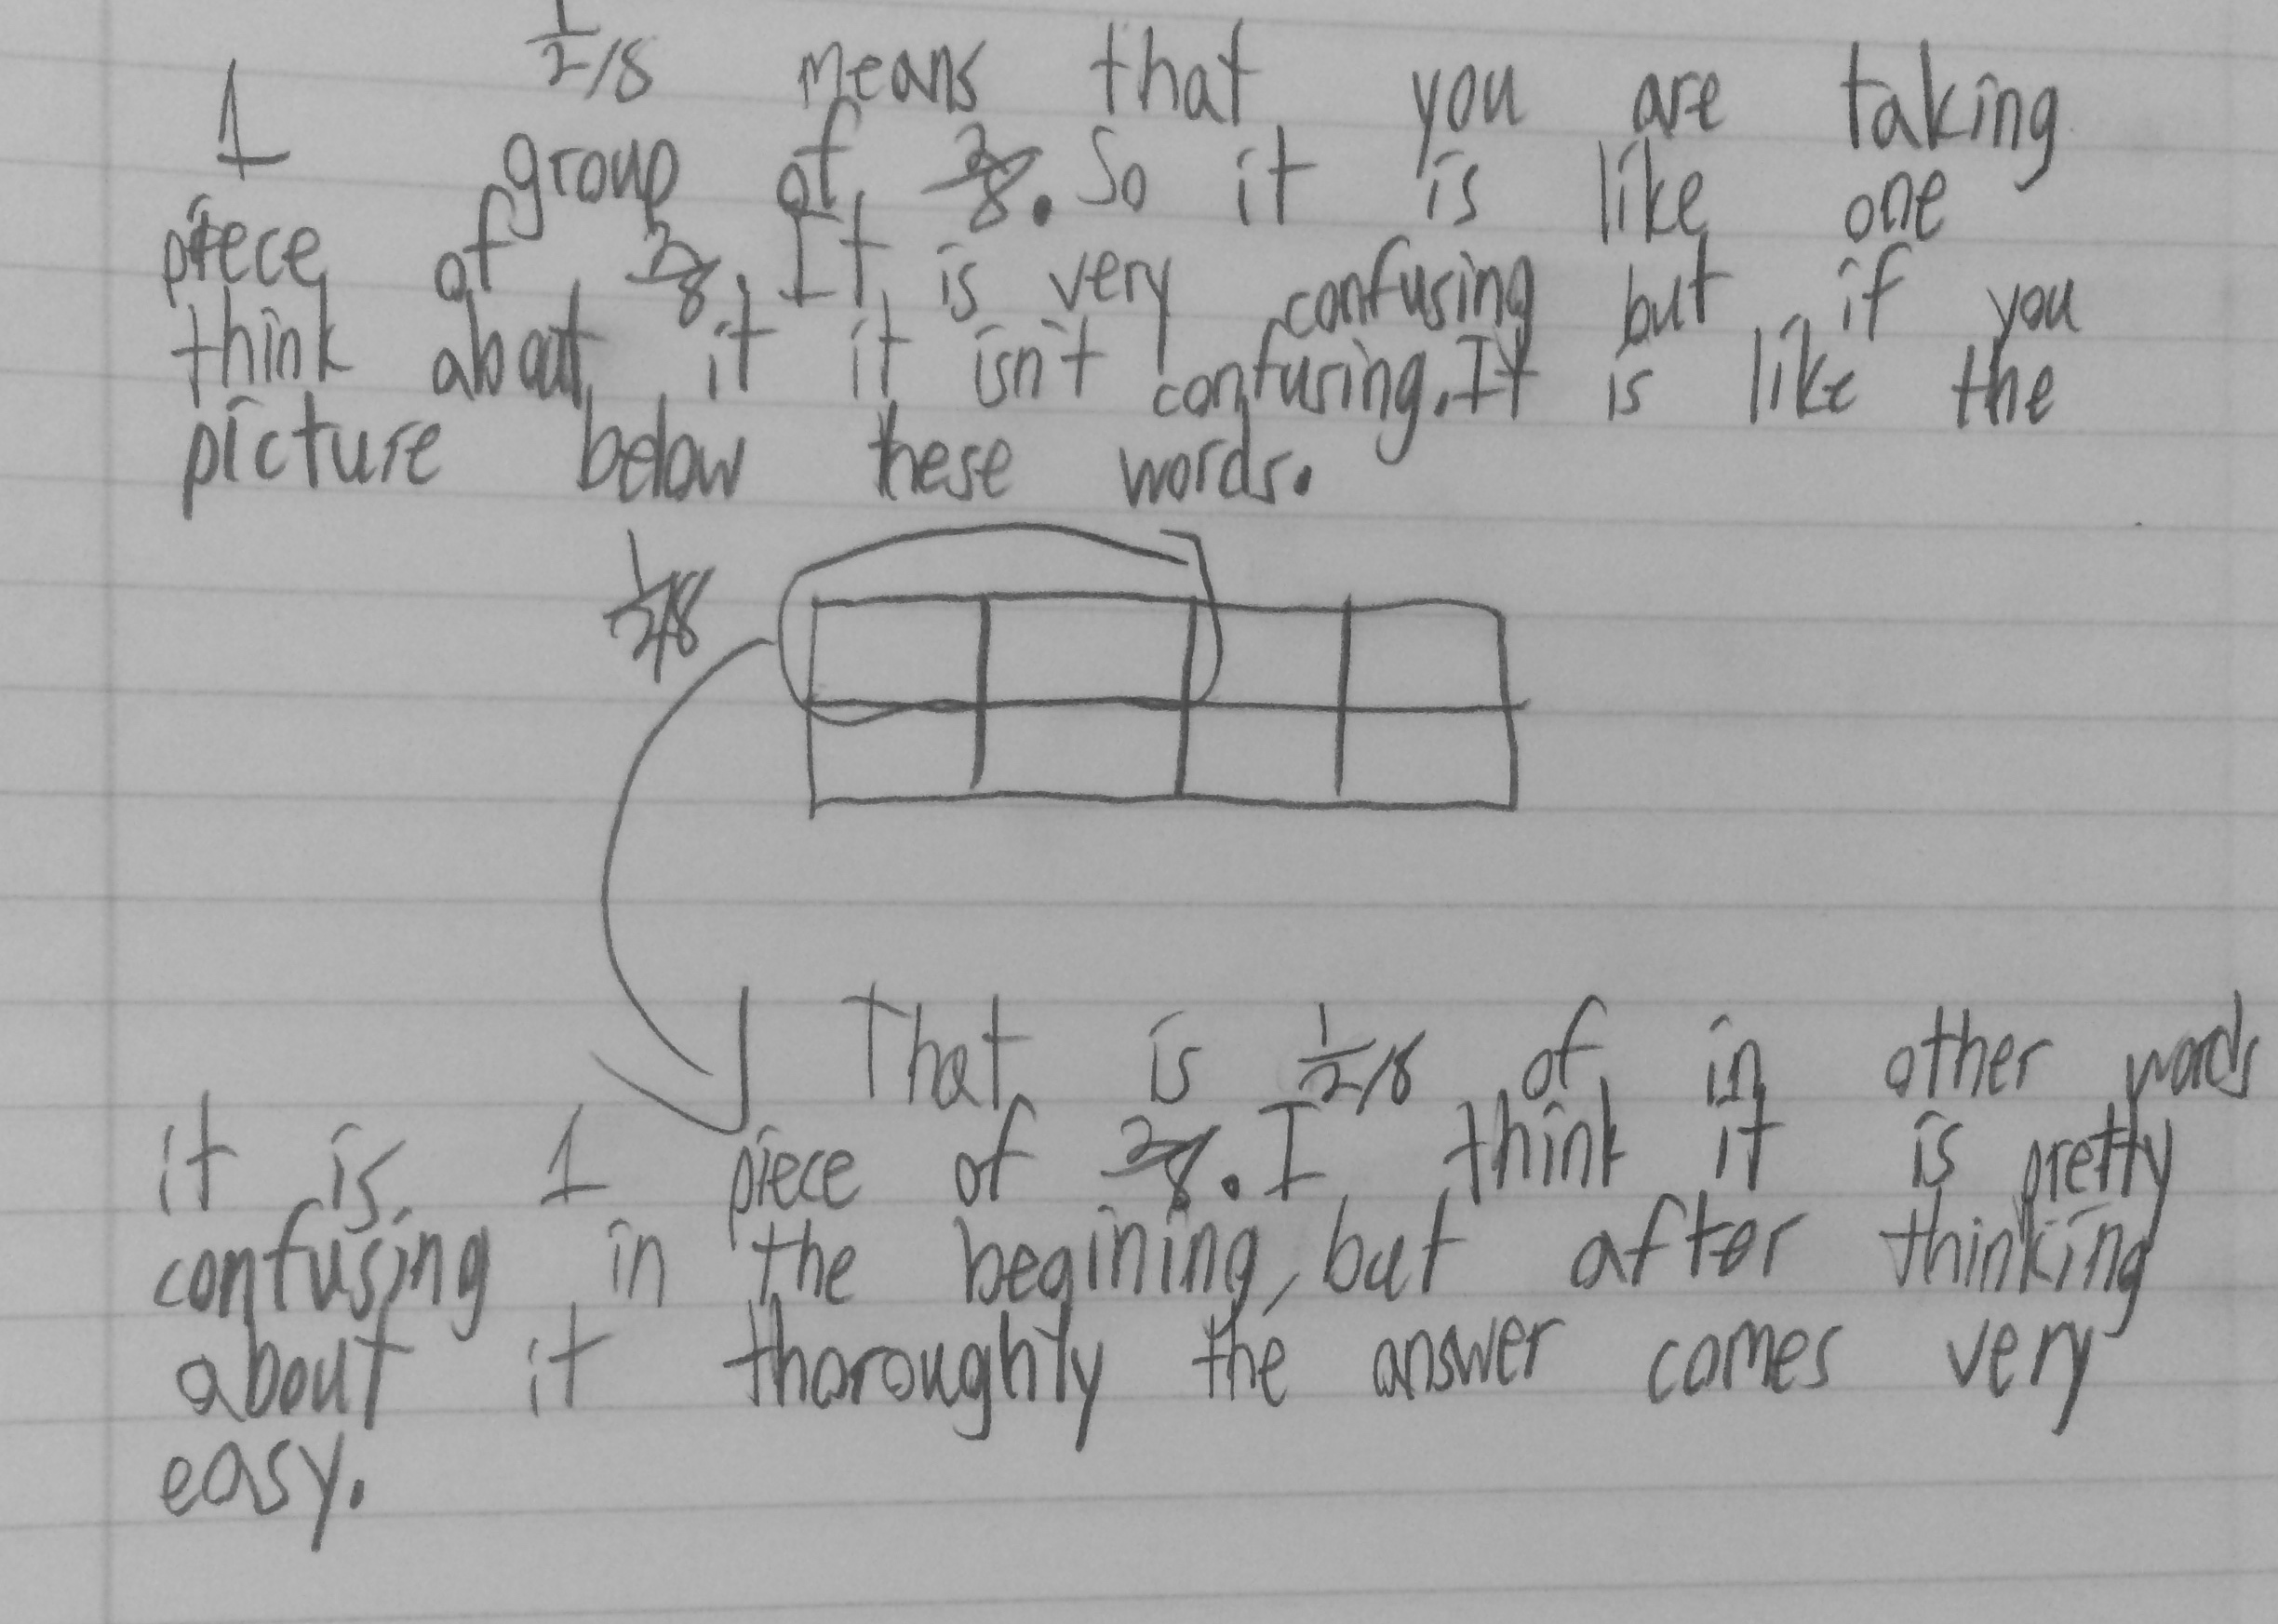 1/2/8 means that you are taking
1 group of 2/8. So it is like one
piece of 2/8. It is very confusing but if you
think about it it isn't confusing. It is like the
picture below these words.
1/2/8
That is 1/2/8 of in other words
it is 1 piece of 2/8. I think it is pretty
confusing in the begining, but after thinking
about it thoroughly the answer comes very
easy.